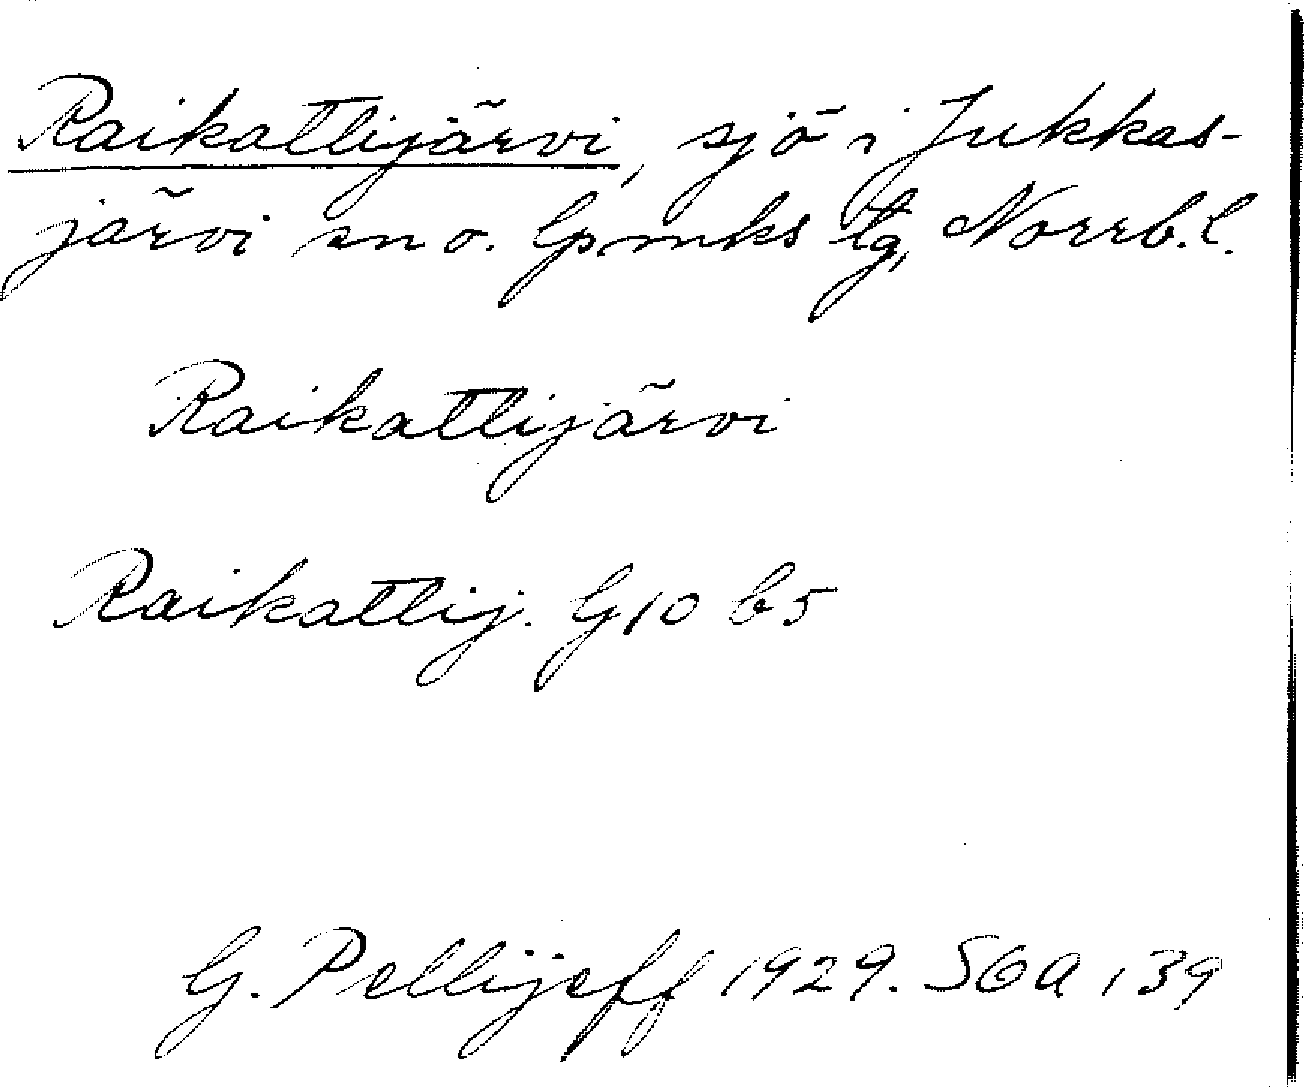 Raikattijärvi, sjö i Jukkas-
järvi sn o. lpmks tg, Norrb. l.
Raikattijärvi
Raikattij. G10 b5
G. Pellijeff 1929. SGA 139